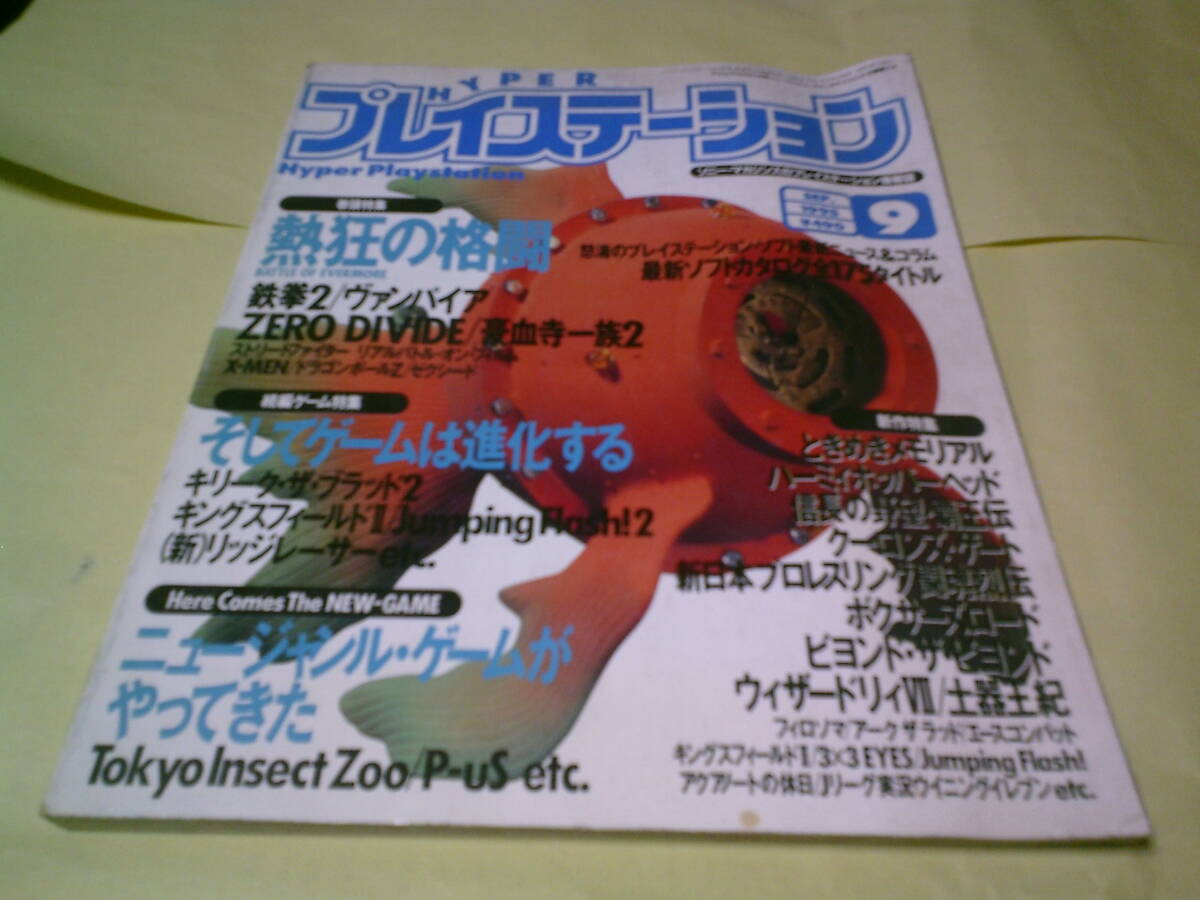 HYPER
プレイステーション
Hyper Playstation
SEP.
1995
¥490
9
巻頭特集
熱狂の格闘
BATTLE OF EVERMORE
鉄拳2/ヴァンパイア
ZERO DIVIDE/豪血寺一族2
ストリートファイター リアルバトル・オン・フィルム
X-MEN/ドラゴンボールZ/ゼクシード
怒濤のプレイステーション・ソフト最新ニュース&コラム
最新ソフトカタログ全175タイトル
続編ゲーム特集
そしてゲームは進化する
キリーク・ザ・ブラッド2
キングスフィールドII/Jumping Flash!2
(新)リッジレーサー etc.
Here Comes The NEW-GAME
ニュージャンル・ゲームが
やってきた
Tokyo Insect Zoo/P-uS etc.
新作特集
ときめきメモリアル
ハーミィホッパーヘッド
信長の野望・覇王伝
クーロンズ・ゲート
新日本プロレスリング 闘魂烈伝
ボクサーズロード
ビヨンド・ザ・ビヨンド
ウィザードリィVII/土器王紀
フィロソマ/アーク ザ ラッド/エースコンバット
キングスフィールドI/3×3 EYES/Jumping Flash!
アクアノートの休日/Jリーグ実況ウイニングイレブン etc.